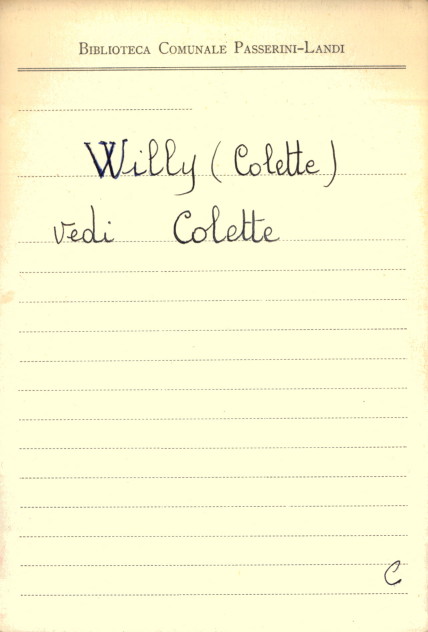 Biblioteca Comunale Passerini-Landi
Willy (Colette)
vedi Colette
C